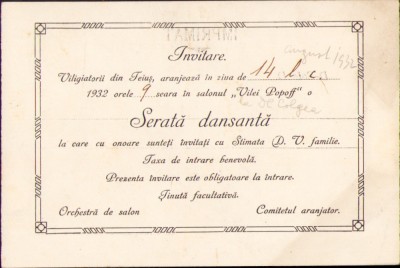 IMPRIMAT
Invitare.
august 1932
Viligiatorii din Teiuș, aranjează în ziua de 14 l. c.
1932 orele 9 seara în salonul „Vilei Popoff" o
la
Serată dansantă
la care cu onoare sunteți invitați cu Stimata D. V. familie.
Taxa de intrare benevolă.
Prezenta invitare este obligatoare la intrare.
Ținută facultativă.
Orchestră de salon
Comitetul aranjator.